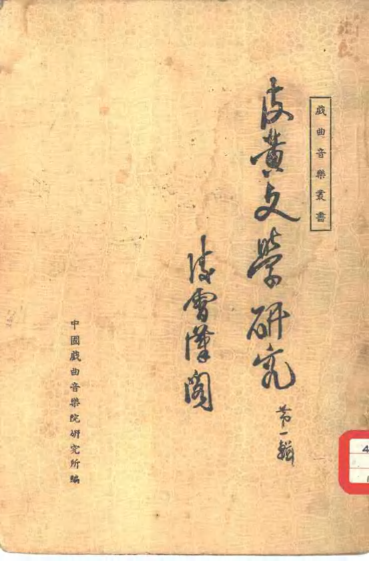 戲曲音樂叢書
皮黃文學研究 第一輯
凌霄漢閣
中國戲曲音樂院研究所編
4